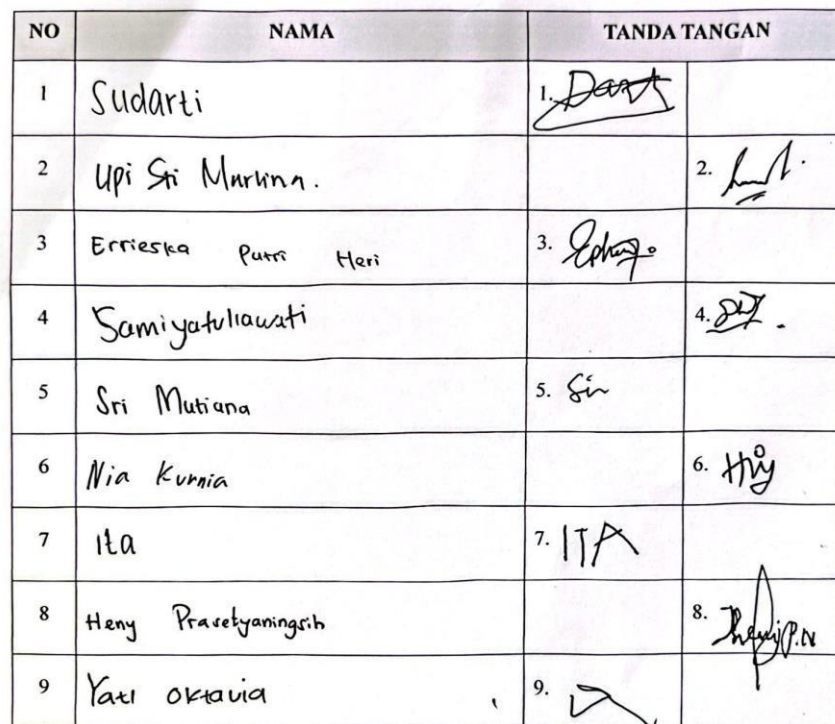 NO NAMA TANDA TANGAN
1 Sudarti 1.
2 Upi Sri Marlina. 2.
3 Errieska Putri Heri 3.
4 Samiyatulliawati 4.
5 Sri Mutiana 5. Sir
6 Nia Kurnia 6.
7 Ita 7. ITA
8 Heny Prasetyaningsih 8.
9 Yati Oktavia 9.